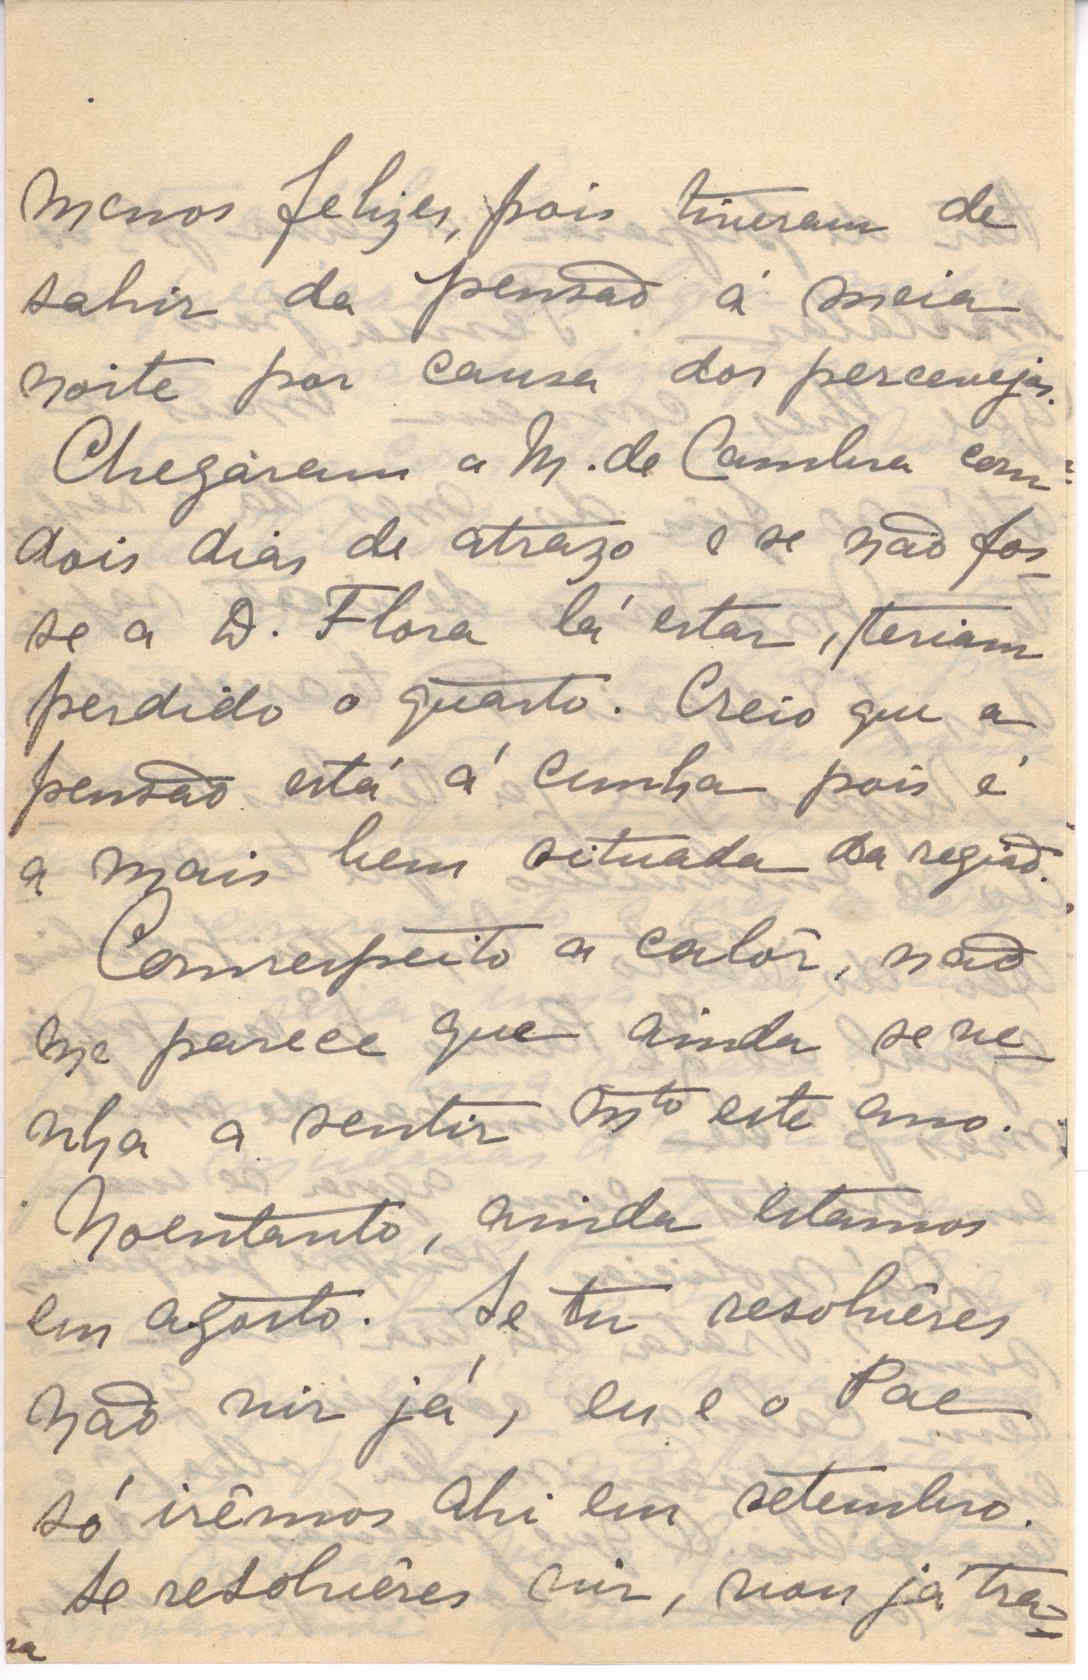 menos felizes, pois tiveram de
sahir da pensão á meia
noite por causa dos percevejos.
Chegáram a M. de Cambra com
dois dias de atrazo e se não fos-
se a D. Flora lá estar, teriam
perdido o quarto. Creio que a
pensão está á cunha pois é
a mais bem situada da região.
Comrespeito a calôr, não
me parece que ainda se ve-
nha a sentir mto este ano.
Noentanto, ainda estamos
em agosto. Se tu resolvêres
não vir já, eu e o Pae
só irêmos ahi em setembro.
Se resolvêres vir, vou já tra=